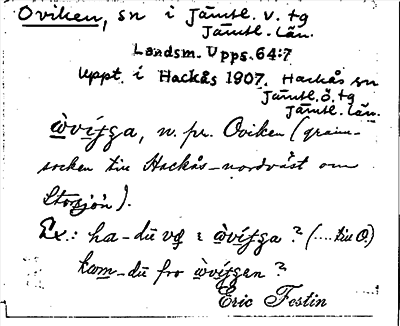 Oviken, sn i Jämtl. v. tg
Jämtl. län.
Landsm. Upps. 64:7
Uppt. i Hackås 1907. Hackås sn
Jämtl. ö. tg
Jämtl. län.
òvíʃga, n. pr. Oviken (grann-
socken till Hackås – nordväst om
Storsjön).
Ex.: ha-du vɐ ɩ òvíʃga? (.... till O.)
kom-du fro òvíʃgen?
Eric Festin